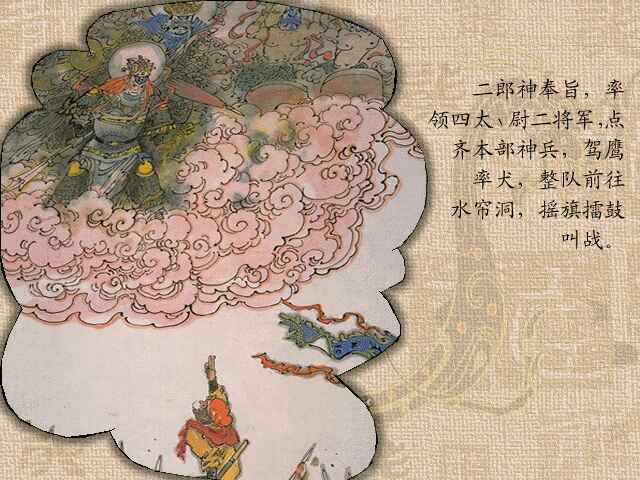 二郎神奉旨，率
领四太、尉二将军,点
齐本部神兵，驾鹰
率犬，整队前往
水帘洞，摇旗擂鼓
叫战。